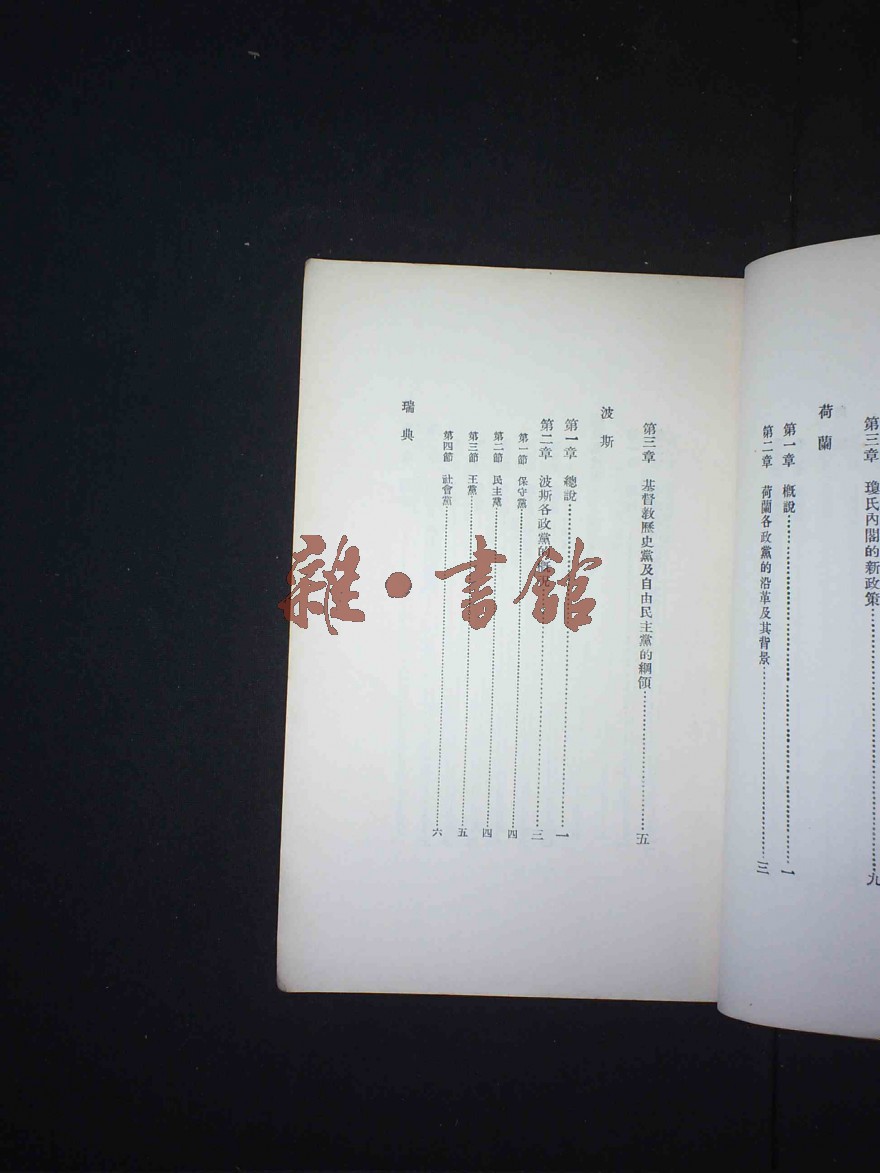 第三章　瓊氏內閣的新政策……九
荷蘭
第一章　概說……一
第二章　荷蘭各政黨的沿革及其背景……三
第三章　基督敎歷史黨及自由民主黨的綱領……五
波斯
第一章　總說……一
第二章　波斯各政黨的……三
第一節　保守黨……四
第二節　民主黨……四
第三節　王黨……五
第四節　社會黨……六
瑞典
雜·書館